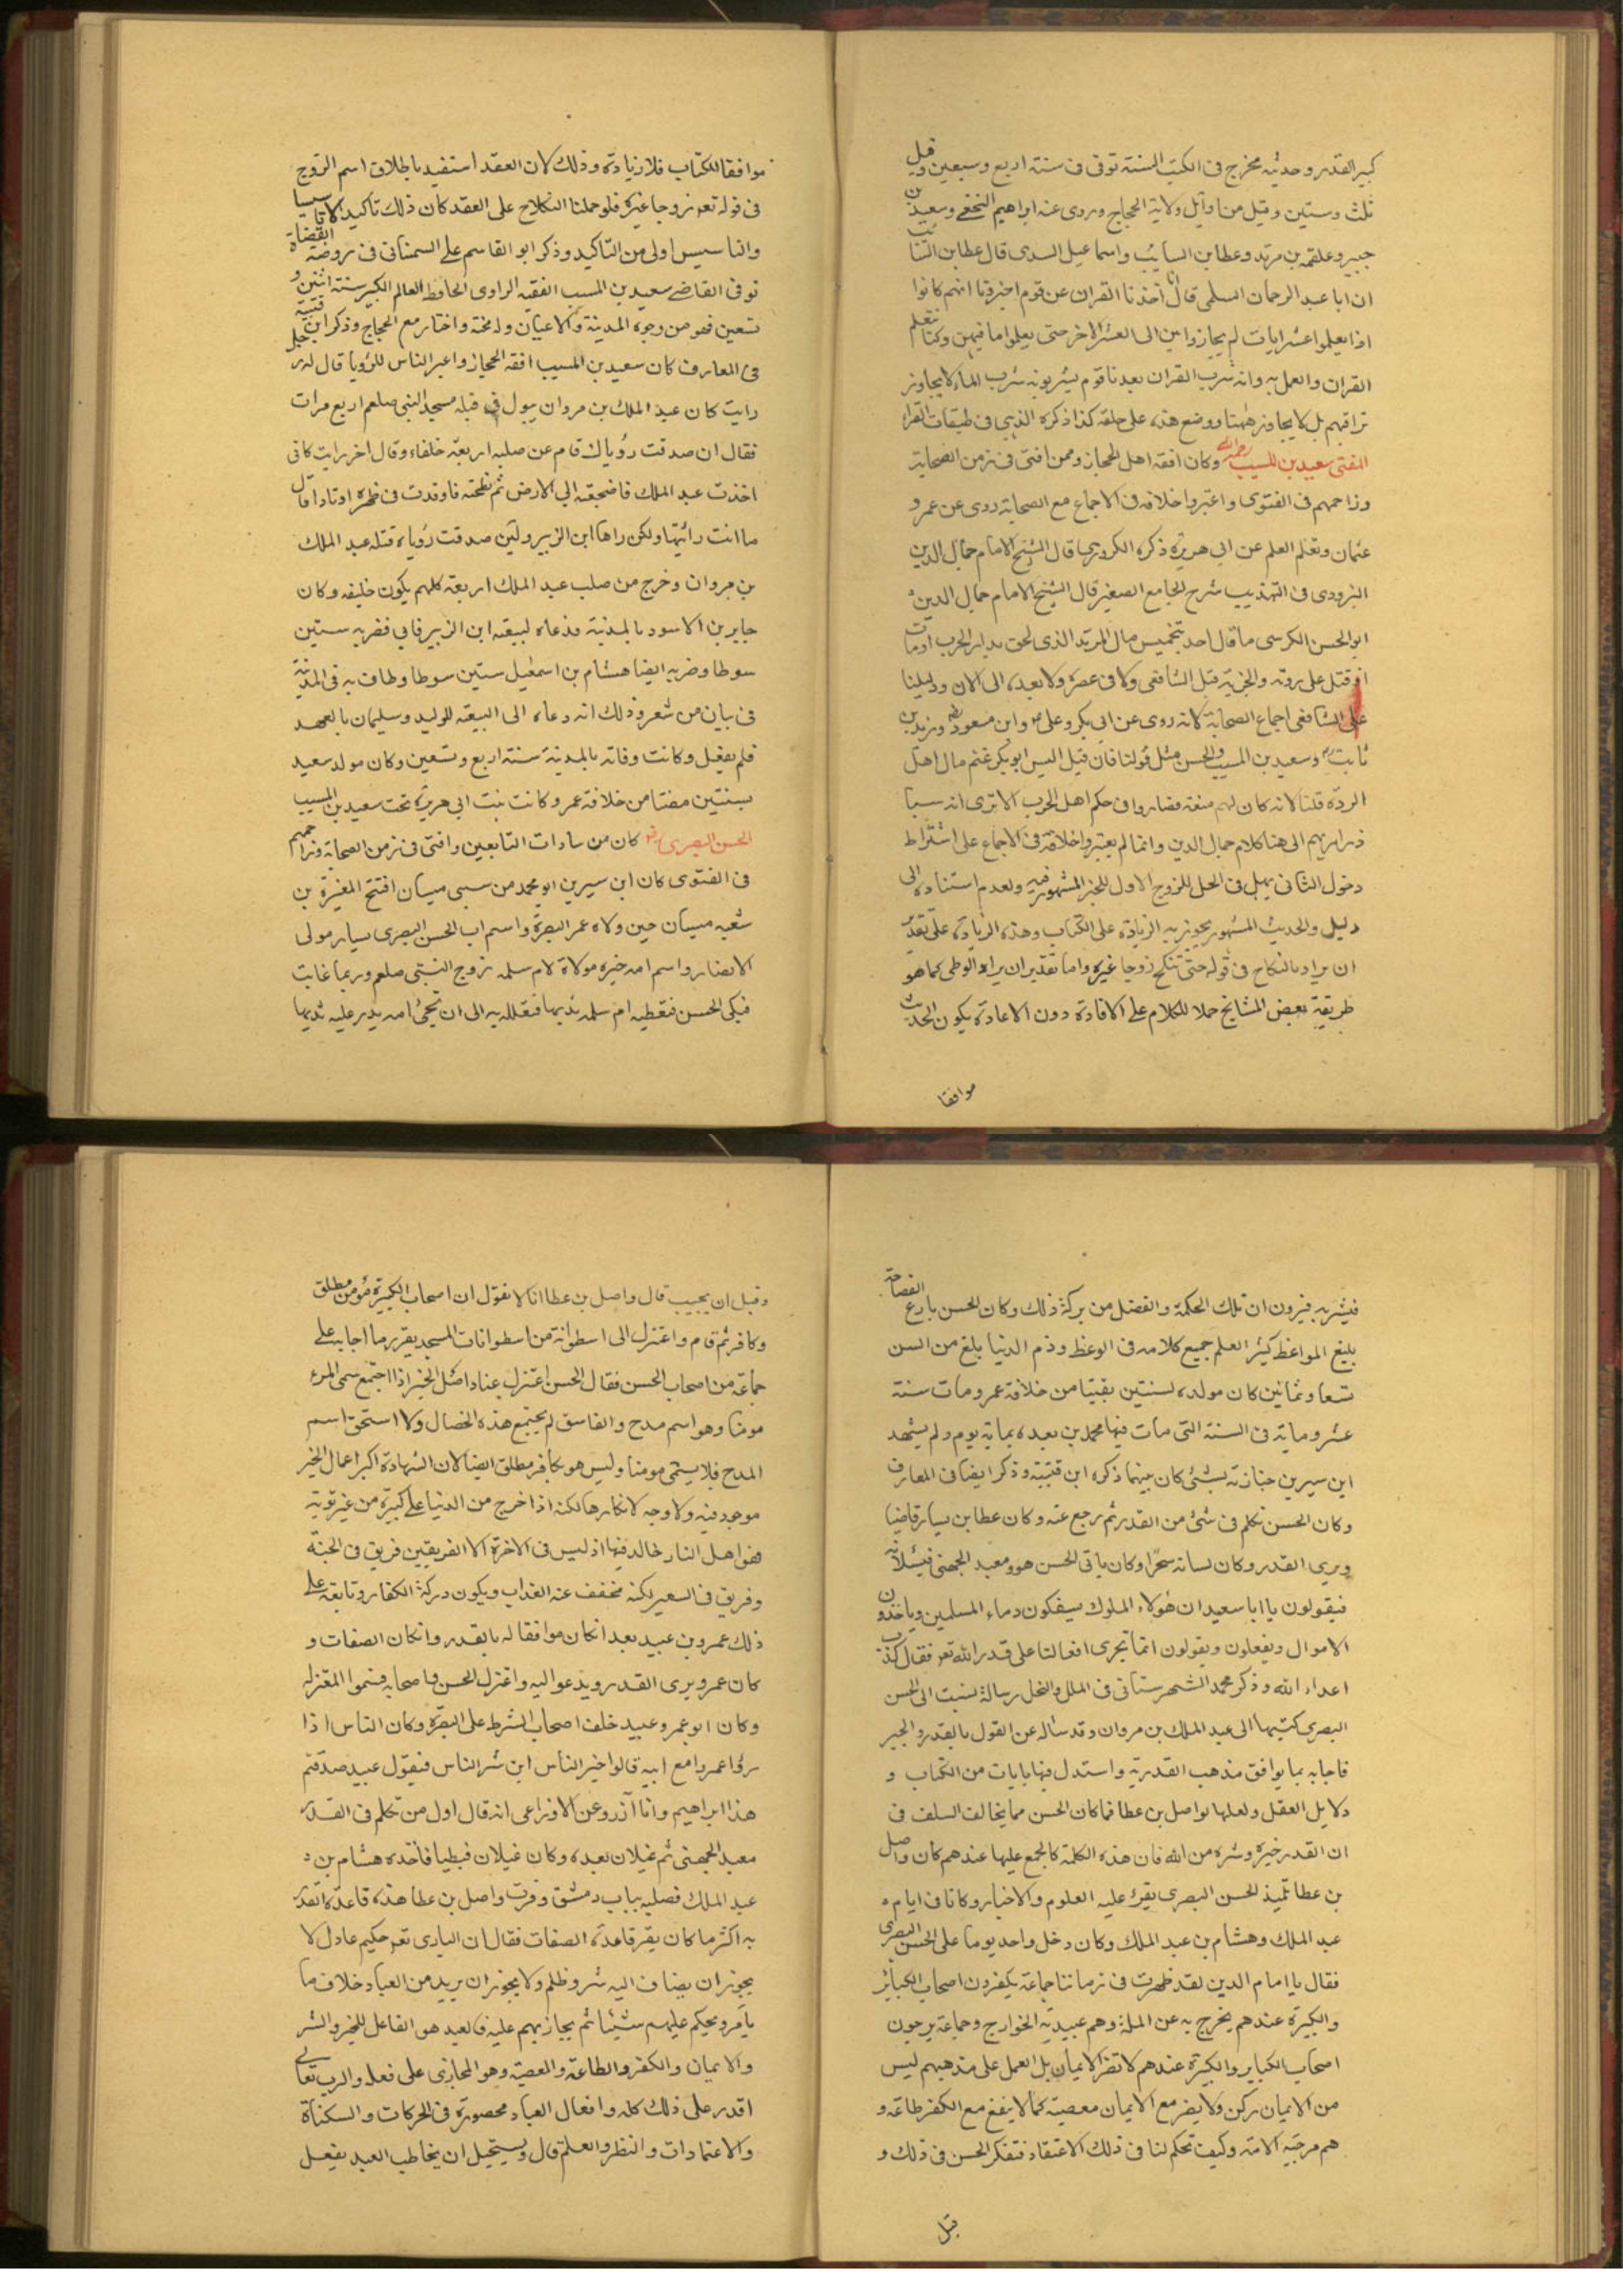 كبير القدر وحديثه مخرج في الكتب الستة توفى في سنة اربع وسبعين وقيل
ثلث وستين وقيل من اوائل ولاية الحجاج وروى عنه ابراهيم النخعي وسعيد بن
جبير وعلقمة بن مرثد وعطا بن السايب واسماعيل السدى قال عطا بن السائب
ان ابا عبد الرحمان السلمي قال انا اخذنا القران عن قوم اخبرونا انهم كانوا
اذا تعلموا عشر ايات لم يجاوزوا من الى العشر الاخر حتى يعلموا ما فيهن وكنا نتعلم
القران والعمل به وانه شرب القران بعدنا قوم يشربونه شرب الماء لا يجاوز
تراقيهم بل لا يجاوز ههنا ووضع هذه على حلقه كذا ذكره الذهبي في طبقات القراء
المفتى سعيد بن المسيب رحمه الله وكان افقه اهل الحجاز وممن افتى في زمن الصحابة
وزاحمهم في الفتوى واعتبروا خلافه في الاجماع مع الصحابة روى عن عمر و
عثمان وتعلم العلم عن ابي هريرة ذكره الكردري قال الشيخ الامام جمال الدين
البزودى في التهذيب شرح الجامع الصغير قال الشيخ الامام جمال الدين
ابو الحسن الكرسى ما قال احد بتخميس مال المرتد الذى لحق بدار الحرب او مات
او قتل على ردته والجزية قبل الشافعى ولا في عصره ولا بعده الى الان ودليلنا
على الشافعى اجماع الصحابة لانه روى عن ابي بكر وعلى وابن مسعود وزيد بن
ثابت وسعيد بن المسيب والحسن مثل قولنا فان قيل اليس ابو بكر غنم مال اهل
الردة قلنا لانه كان لهم منعة فصاروا في حكم اهل الحرب الا ترى انه سبا
ذراريهم الى هنا كلام جمال الدين وانما لم يعتبروا خلافه في الاجماع على اشتراط
دخول الثانى بهل في الحل للزوج الاول للخبر المشهور فيه ولعدم استناده الى
دليل والحديث المشهور يجوز به الزيادة على الكتاب وهذه الزيادة على تقدير
ان يراد بالنكاح في قوله حتى تنكح زوجا غيره واما تقدير ان يراد الوطى كما هو
طريقة بعض المشايخ حملا للكلام على الافادة دون الاعادة يكون الحديث
موافقا
موافقا للكتاب فلا زيادة وذلك لان العقد استفيد باطلاق اسم الزوج
في قوله تعالى زوجا غيره فلو حملنا النكاح على العقد كان ذلك تاكيدا لا تاسيسا
والتاسيس اولى من التاكيد وذكر ابو القاسم على السمنانى في روضة القضاة
توفى القاضي سعيد بن المسيب الفقيه الراوى الحافظ العالم الكبير سنة اثنين و
تسعين فهو من وجوه المدينة والاعيان وله محنة واخبار مع الحجاج وذكر ابن قتيبة
في المعارف كان سعيد بن المسيب افقه الحجاز واعبر الناس للرؤيا قال له رجل
رايت كان عبد الملك بن مروان يبول في قبلة مسجد النبي صلعم اربع مرات
فقال ان صدقت رؤياك قام من صلبه اربعة خلفاء وقال اخر رايت كانى
اخذت عبد الملك فاضجعته الى الارض ثم بطحته فاوتدت في ظهره اوتادا قال
ما انت رائيها ولكن راها ابن الزبير ولئن صدقت رؤياه قتله عبد الملك
بن مروان وخرج من صلب عبد الملك اربعة كلهم يكون خليفه وكان
جابر بن الاسود بالمدينة فدعاه لبيعة ابن الزبير فابي فضربه ستين
سوطا وضربه ايضا هشام بن اسمعيل ستين سوطا وطاف به في المدينة
في بيان من شعر وذلك انه دعاه الى البيعة للوليد وسليمان بالعهد
فلم يفعل وكانت وفاته بالمدينة سنة اربع وتسعين وكان مولد سعيد
بسنتين مضتا من خلافة عمر وكانت بنت ابي هريرة تحت سعيد بن المسيب
الحسن البصرى كان من سادات التابعين وافتى في زمن الصحابة وزاحمهم
في الفتوى كان ابن سيرين ابو محمد من سبي ميسان افتتح المغيرة بن
شعبه ميسان حين ولاه عمر البصرة واسم اب الحسن البصرى يسار مولى
الانصار واسم امه خيره مولاة لام سلمه زوج النبى صلعم وربما غابت
فبكى الحسن فتعطيه ام سلمه ثديها فتعلله به الى ان تجئ امه يدر عليه ثديها
فيشربه فيرون ان تلك الحكمة والفضل من بركة ذلك وكان الحسن بارع الفصاحة
بليغ المواعظ كثير العلم جميع كلامه في الوعظ وذم الدنيا بلغ من السن
تسعا وثمانين كان مولده لسنتين بقيتا من خلافة عمر ومات سنة
عشر وماية في السنة التى مات فيها محمد بن بعده بماية يوم ولم يشهد
ابن سيرين جنازته لشئ كان بينهما ذكره ابن قتيبة وذكر ايضا في المعارف
وكان الحسن تكلم في شئ من القدر ثم رجع عنه وكان عطا بن يسار قاضيا
ويرى القدر وكان لسانه سحرا وكان ياتى الحسن هو ومعبد الجهنى فيسئلانه
فيقولون يا ابا سعيد ان هؤلاء الملوك يسفكون دماء المسلمين وياخذون
الاموال ويفعلون ويقولون انما تجرى افعالنا على قدر الله تعالى فقال كذب
اعداء الله وذكر محمد الشهرستانى في الملل والنحل رسالة نسبت الى الحسن
البصرى كتبها الى عبد الملك بن مروان وقد ساله عن القول بالقدر والجبر
فاجابه بما يوافق مذهب القدرية واستدل فيها بايات من الكتاب و
دلايل العقل ولعلها لواصل بن عطا فما كان الحسن مما يخالف السلف في
ان القدر خيره وشره من الله فان هذه الكلمة كالمجمع عليها عندهم كان واصل
بن عطا تلميذ الحسن البصرى يقرء عليه العلوم والاخبار وكانا في ايام
عبد الملك وهشام بن عبد الملك وكان دخل واحد يوما على الحسن البصرى
فقال يا امام الدين لقد ظهرت في زماننا جماعة يكفرون اصحاب الكبائر
والكبيرة عندهم يخرج به عن الملة وهم عبيدية الخوارج وجماعة يرجون
اصحاب الكباير والكبيرة عندهم لا تضر الايمان بل العمل على مذهبهم ليس
من الايمان ركن ولا يضر مع الايمان معصية كما لا ينفع مع الكفر طاعة و
هم مرجئة الامة وكيف تحكم لنا في ذلك الاعتقاد فتفكر الحسن في ذلك و
قبل
وقبل ان يجيب قال واصل بن عطا انا لا نقول ان اصحاب الكبيرة مؤمن مطلق
وكافر ثم قام واعتزل الى اسطوانة من اسطوانات المسجد يقرر ما اجاب على
جماعة من اصحاب الحسن فقال الحسن اعتزل عنا واصل الخير اذا اجتمع سمى المرء
مومنا وهو اسم مدح والفاسق لم يجتمع هذه الخصال ولا استحق اسم
المدح فلا يسمى مومنا وليس هو بكافر مطلق ايضا لان الشهادة اكبر اعمال الخير
موجود فيه ولا وجه لانكارها لكنه اذا خرج من الدنيا على كبيرة من غير توبة
فهو اهل النار خالد فيها اذ ليس في الاخرة الا الفريقين فريق في الجنة
وفريق في السعير لكنه مخفف عنه العذاب ويكون دركة الكفار وتابعه على
ذلك عمرو بن عبيد بعد ان كان موافقا له بالقدر وانكان الصفات و
كان عمرو يرى القدر ويدعو اليه واعتزل الحسن واصحابه فسموا المعتزله
وكان ابو عمرو عبيد خلف اصحاب الشرط على البصرة وكان الناس اذا
رؤا عمروا مع ابيه قالوا خير الناس ابن شر الناس فيقول عبيد صدقتم
هذا ابراهيم وانا آزر وعن الاوزاعى انه قال اول من تكلم في القدر
معبد الجهنى ثم غيلان بعده وكان غيلان قبطيا فاخذه هشام بن
عبد الملك فصلبه بباب دمشق وقرت واصل بن عطا هذه قاعدة القدر
به اكثر ما كان يقر قاعدة الصفات فقال ان البارى تعالى حكيم عادل لا
يجوز ان يضاف اليه شر وظلم ولا يجوز ان يريد من العباد خلاف ما
يامر ويحكم عليهم شيئا ثم يجازيهم عليه فالعبد هو الفاعل للخير والشر
والايمان والكفر والطاعة والمعصية وهو المجازى على فعله والرب تعالى
اقدر على ذلك كله وافعال العباد محصورة في الحركات والسكنات
والاعتمادات والنظر والعلم قال ويستحيل ان يخاطب العبد بفعل